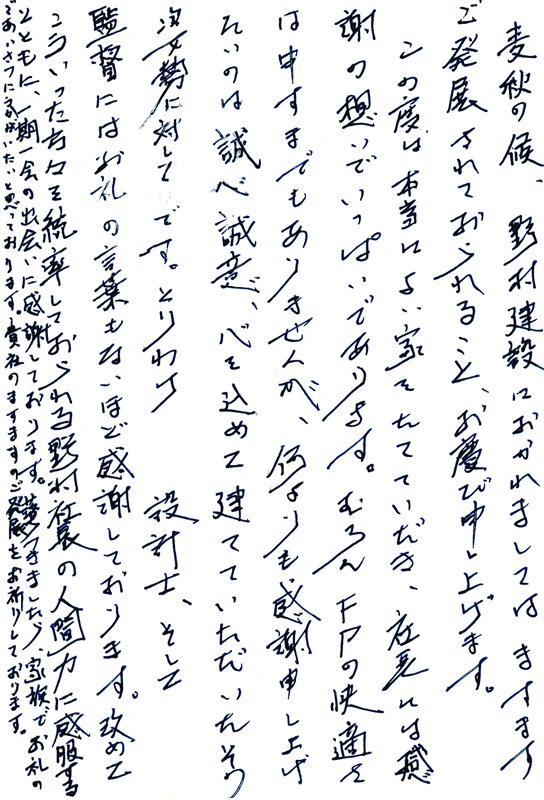 麦秋の候、野村建設におかれましてはますます
ご発展されておられること、お慶び申し上げます。
この度は本当によい家をたてていだき、社長には感
謝の想いでいっぱいであります。むろんFPの快適さ
は申すまでもありませんが、何よりも感謝申し上げ
たいのは誠心誠意、心を込めて建てていただいたその
姿勢に対してのです。とりわけ 設計士、そして
監督にはお礼の言葉もないほど感謝しております。改めて
こういった方々を統率しておられる野村社長の人間力に感服する
とともに、一期一会の出会いに感謝しております。落つきましたら、家族でお礼の
であいさつにうかがいたいと思っております。貴社のますますのご発展をお祈りしております。